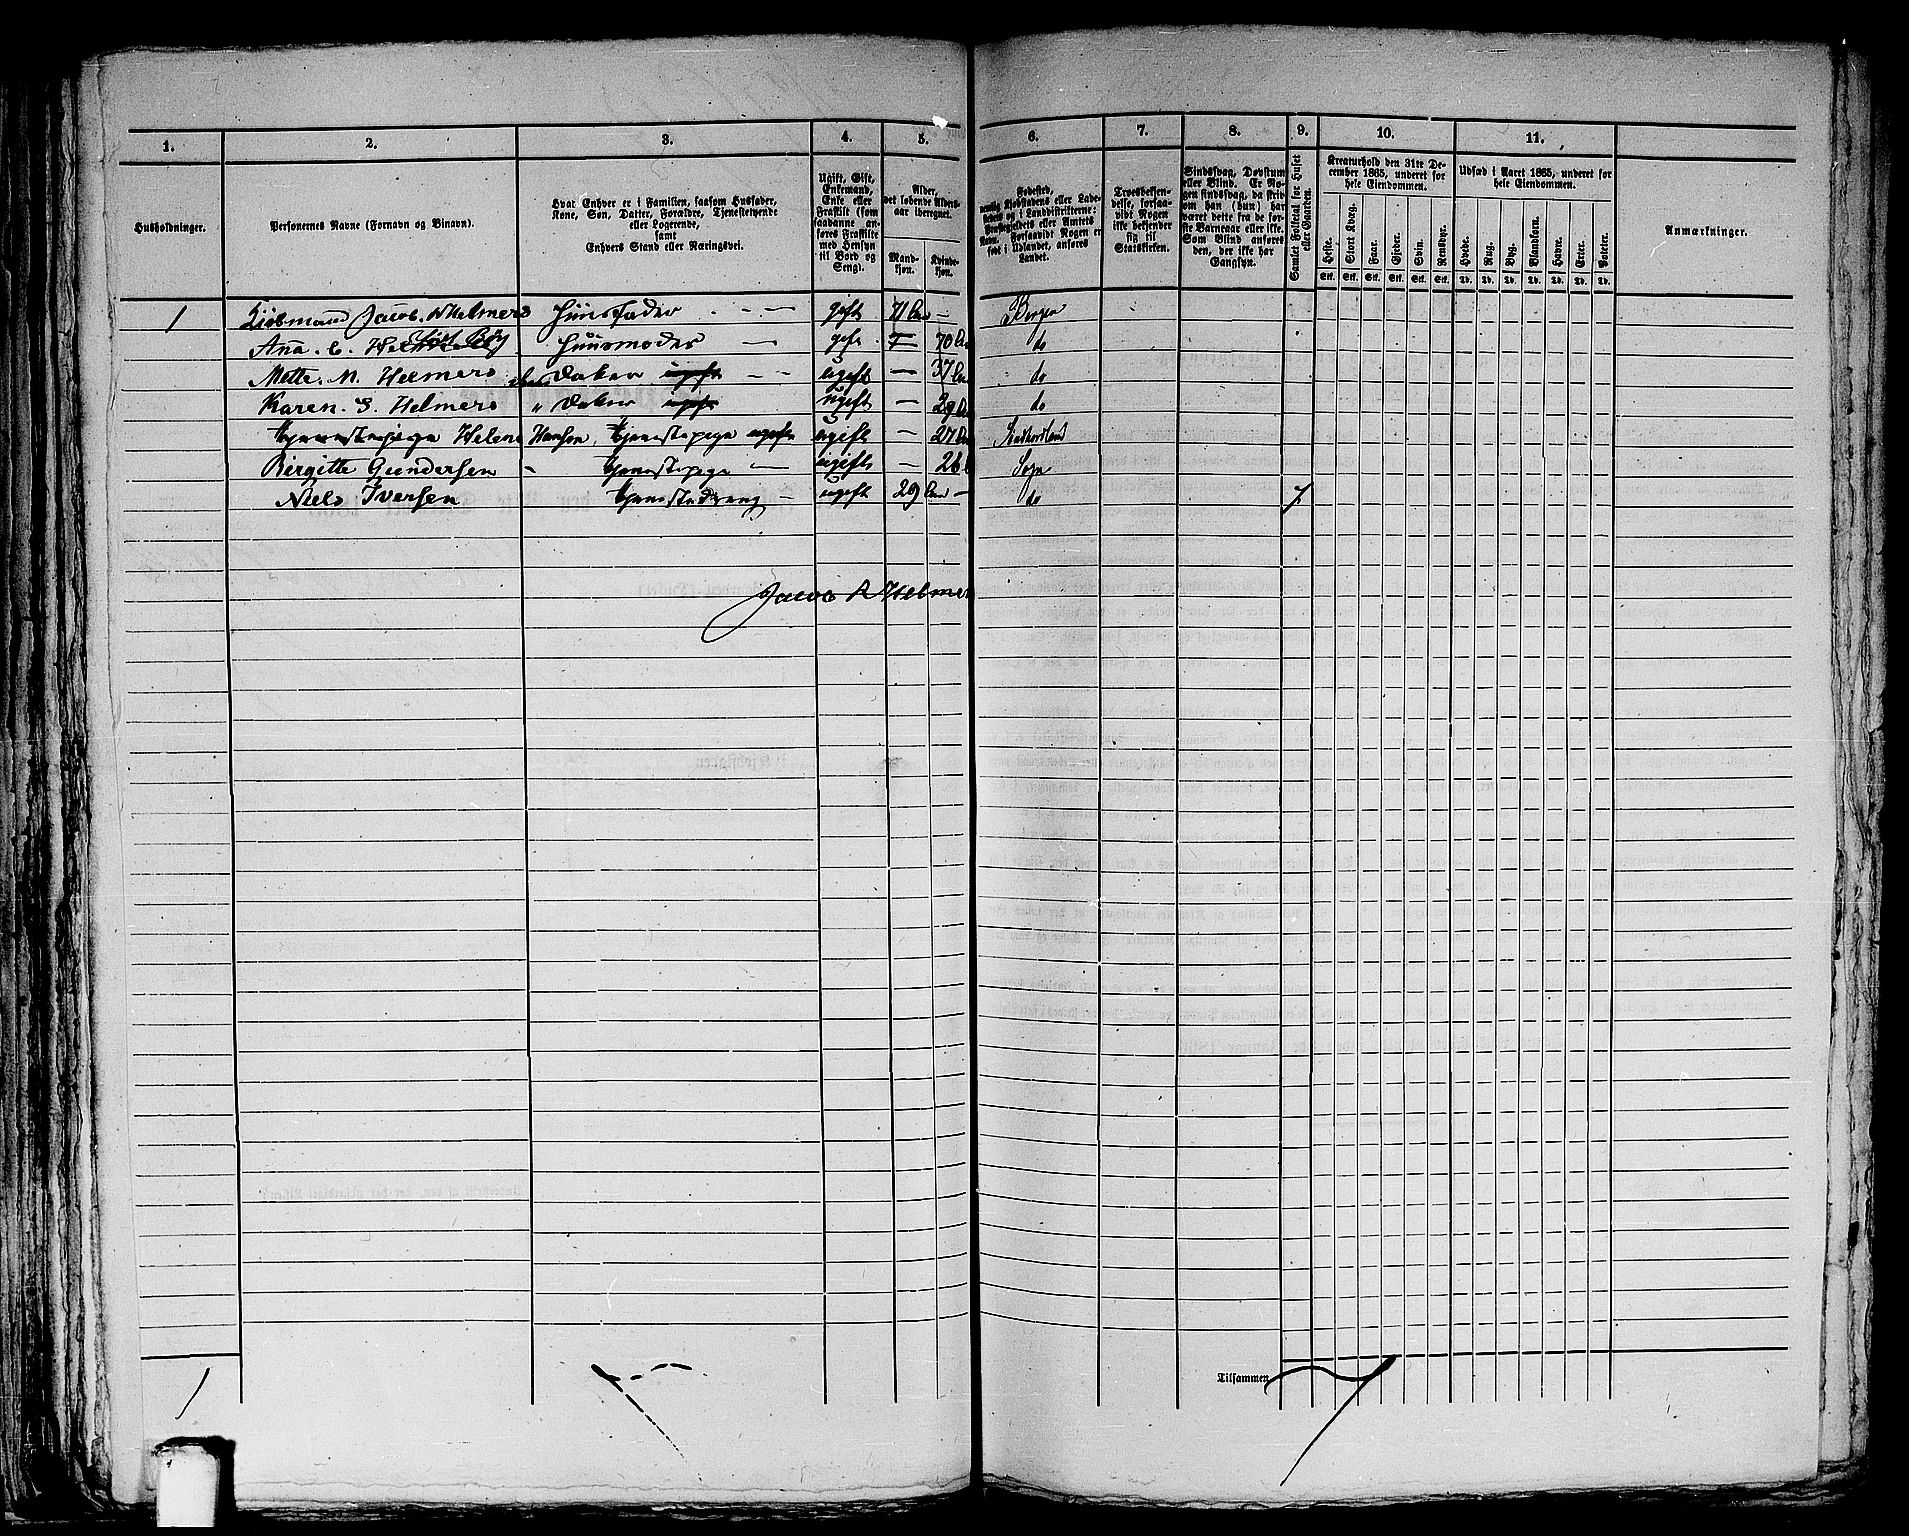 1. 2. 3. 4. 5. 6. 7. 8. 9. 10. 11.
Husholdninger.
Personernes Navne (Fornavn og Binavn).
Hvar Enhver er i Familien, saasom Husfader,
Kone, Søn, Datter, Forældre, Tjenestetyende
eller Logerende,
samt
Enhvers Stand eller Næringsvei.
Ugift, Gift,
Enkemand,
Enke eller
Fraskilt (som
saadanne an-
føres Fraskilte
med Hensyn
til Bord og
Seng).
Alder,
det løbende Alders-
aar iberegnet.
Mand-
kjøn.
Kvinde-
kjøn.
Fødested,
nemlig Kjøbstadens eller Lade-
stedets og i Landdistrikterne:
Præstegjeldets eller Amtets
Navn. Forsaavidt Nogen er
født i Udlandet, anføres
Landet.
Troesbekjen-
delse, forsaa-
vidt Nogen
ikke bekjender
sig til
Statskirken.
Sindssvag, Døvstum
eller Blind. Er No-
gen sindssvag, da skri-
ves om han (hun) har
været dette fra de før-
ste Barneaar eller ikke.
Som Blind anføres
den, der ikke har
Gangsyn.
Samlet Folketal for Huset
eller Gaarden.
Kreaturhold den 31te De-
cember 1865, underet for
hele Eiendommen.
Heste. Stort Kvæg. Faar. Gjeder. Svin. Rensdyr.
Stk. Stk. Stk. Stk. Stk. Stk.
Udsæd i Aaret 1865, underet for
hele Eiendommen.
Hvede. Rug. Byg. Blandkorn. Havre. Erter. Poteter.
Td. Td. Td. Td. Td. Td. Td.
Anmærkninger.
1 Kiøbmand Jacob. Helmers Huusfader gift 71 Bergen
Ana. C. Helmers Huusmoder gift 70 do
Mette. M. Helmers ugift 37 do
Karen. S. Helmers ugift 29 do
Helene Hansen, Tjenestepige ugift 27
Birgitte Gundersen Tjenestepige ugift 26 Sogn
Niels Iversen Tjenestedreng ugift 29 do 7
Jacob R Helmers
Tilsammen
1